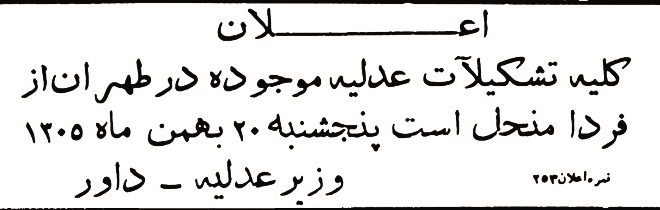 اعـــــلان
کلیه تشکیلآت عدلیه موجوده در طهران از
فردا منحل است پنجشنبه ۲۰ بهمن ماه ۱۳۰۵
وزیر عدلیه ـ داور
نمره اعلان ۲۵۳